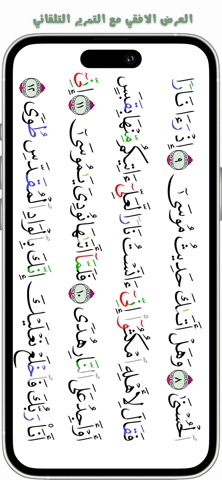 العرض الافقي مع التمرير التلقائي
ٱلْحُسْنَىٰ ٨ وَهَلْ أَتَىٰكَ حَدِيثُ مُوسَىٰٓ ٩ إِذْ رَءَا نَارًا
فَقَالَ لِأَهْلِهِ ٱمْكُثُوٓا۟ إِنِّىٓ ءَانَسْتُ نَارًا لَّعَلِّىٓ ءَاتِيكُم مِّنْهَا بِقَبَسٍ
أَوْ أَجِدُ عَلَى ٱلنَّارِ هُدًى ١٠ فَلَمَّآ أَتَىٰهَا نُودِىَ يَٰمُوسَىٰٓ ١١ إِنِّىٓ
أَنَا۠ رَبُّكَ فَٱخْلَعْ نَعْلَيْكَ إِنَّكَ بِٱلْوَادِ ٱلْمُقَدَّسِ طُوًى ١٢